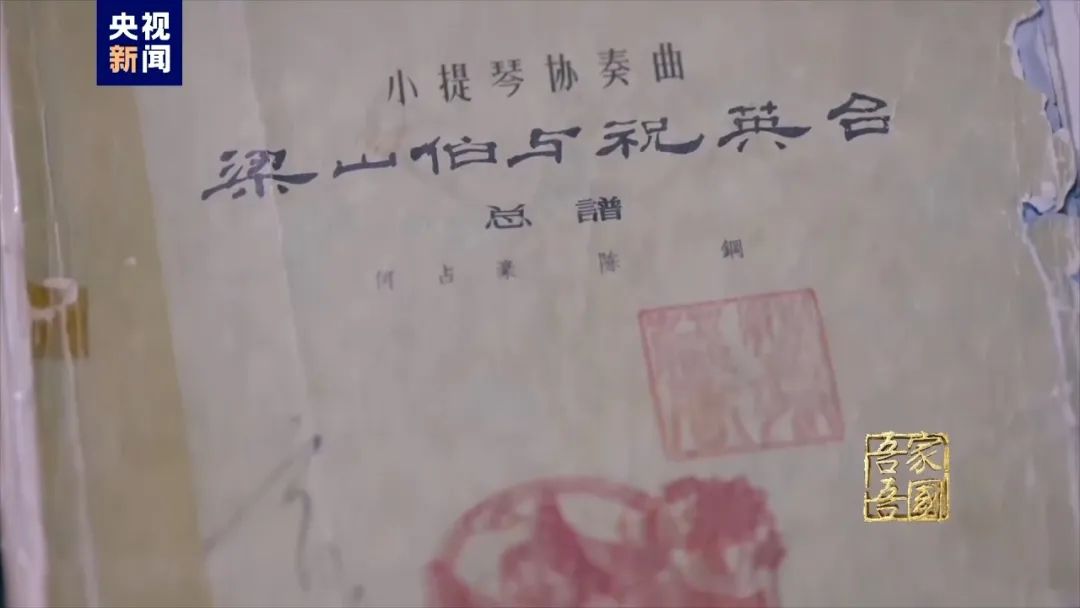 央视
新闻
小提琴协奏曲
梁山伯与祝英台
总譜
何占豪 陈 鋼
吾家
吾国